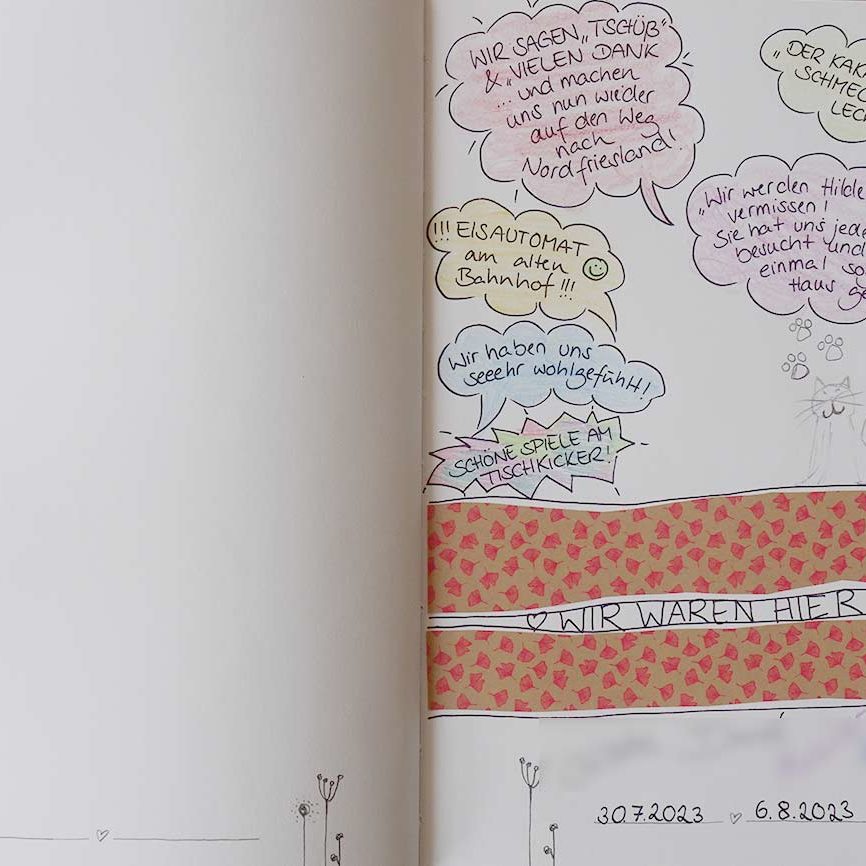 WIR SAGEN „TSCHÜß“
& „VIELEN DANK
... und machen
uns nun wieder
auf den Weg
nach
Nordfriesland!
„DER KAK
SCHMEC
LEC
„Wir werden Hilde
vermissen!
Sie hat uns jede
besucht und
einmal so
Haus ge
!!! EISAUTOMAT
am alten
Bahnhof !!!
Wir haben uns
seeehr wohlgefühlt!
SCHÖNE SPIELE AM
TISCHKICKER!
♡ WIR WAREN HIER
30.7.2023 ♡ 6.8.2023